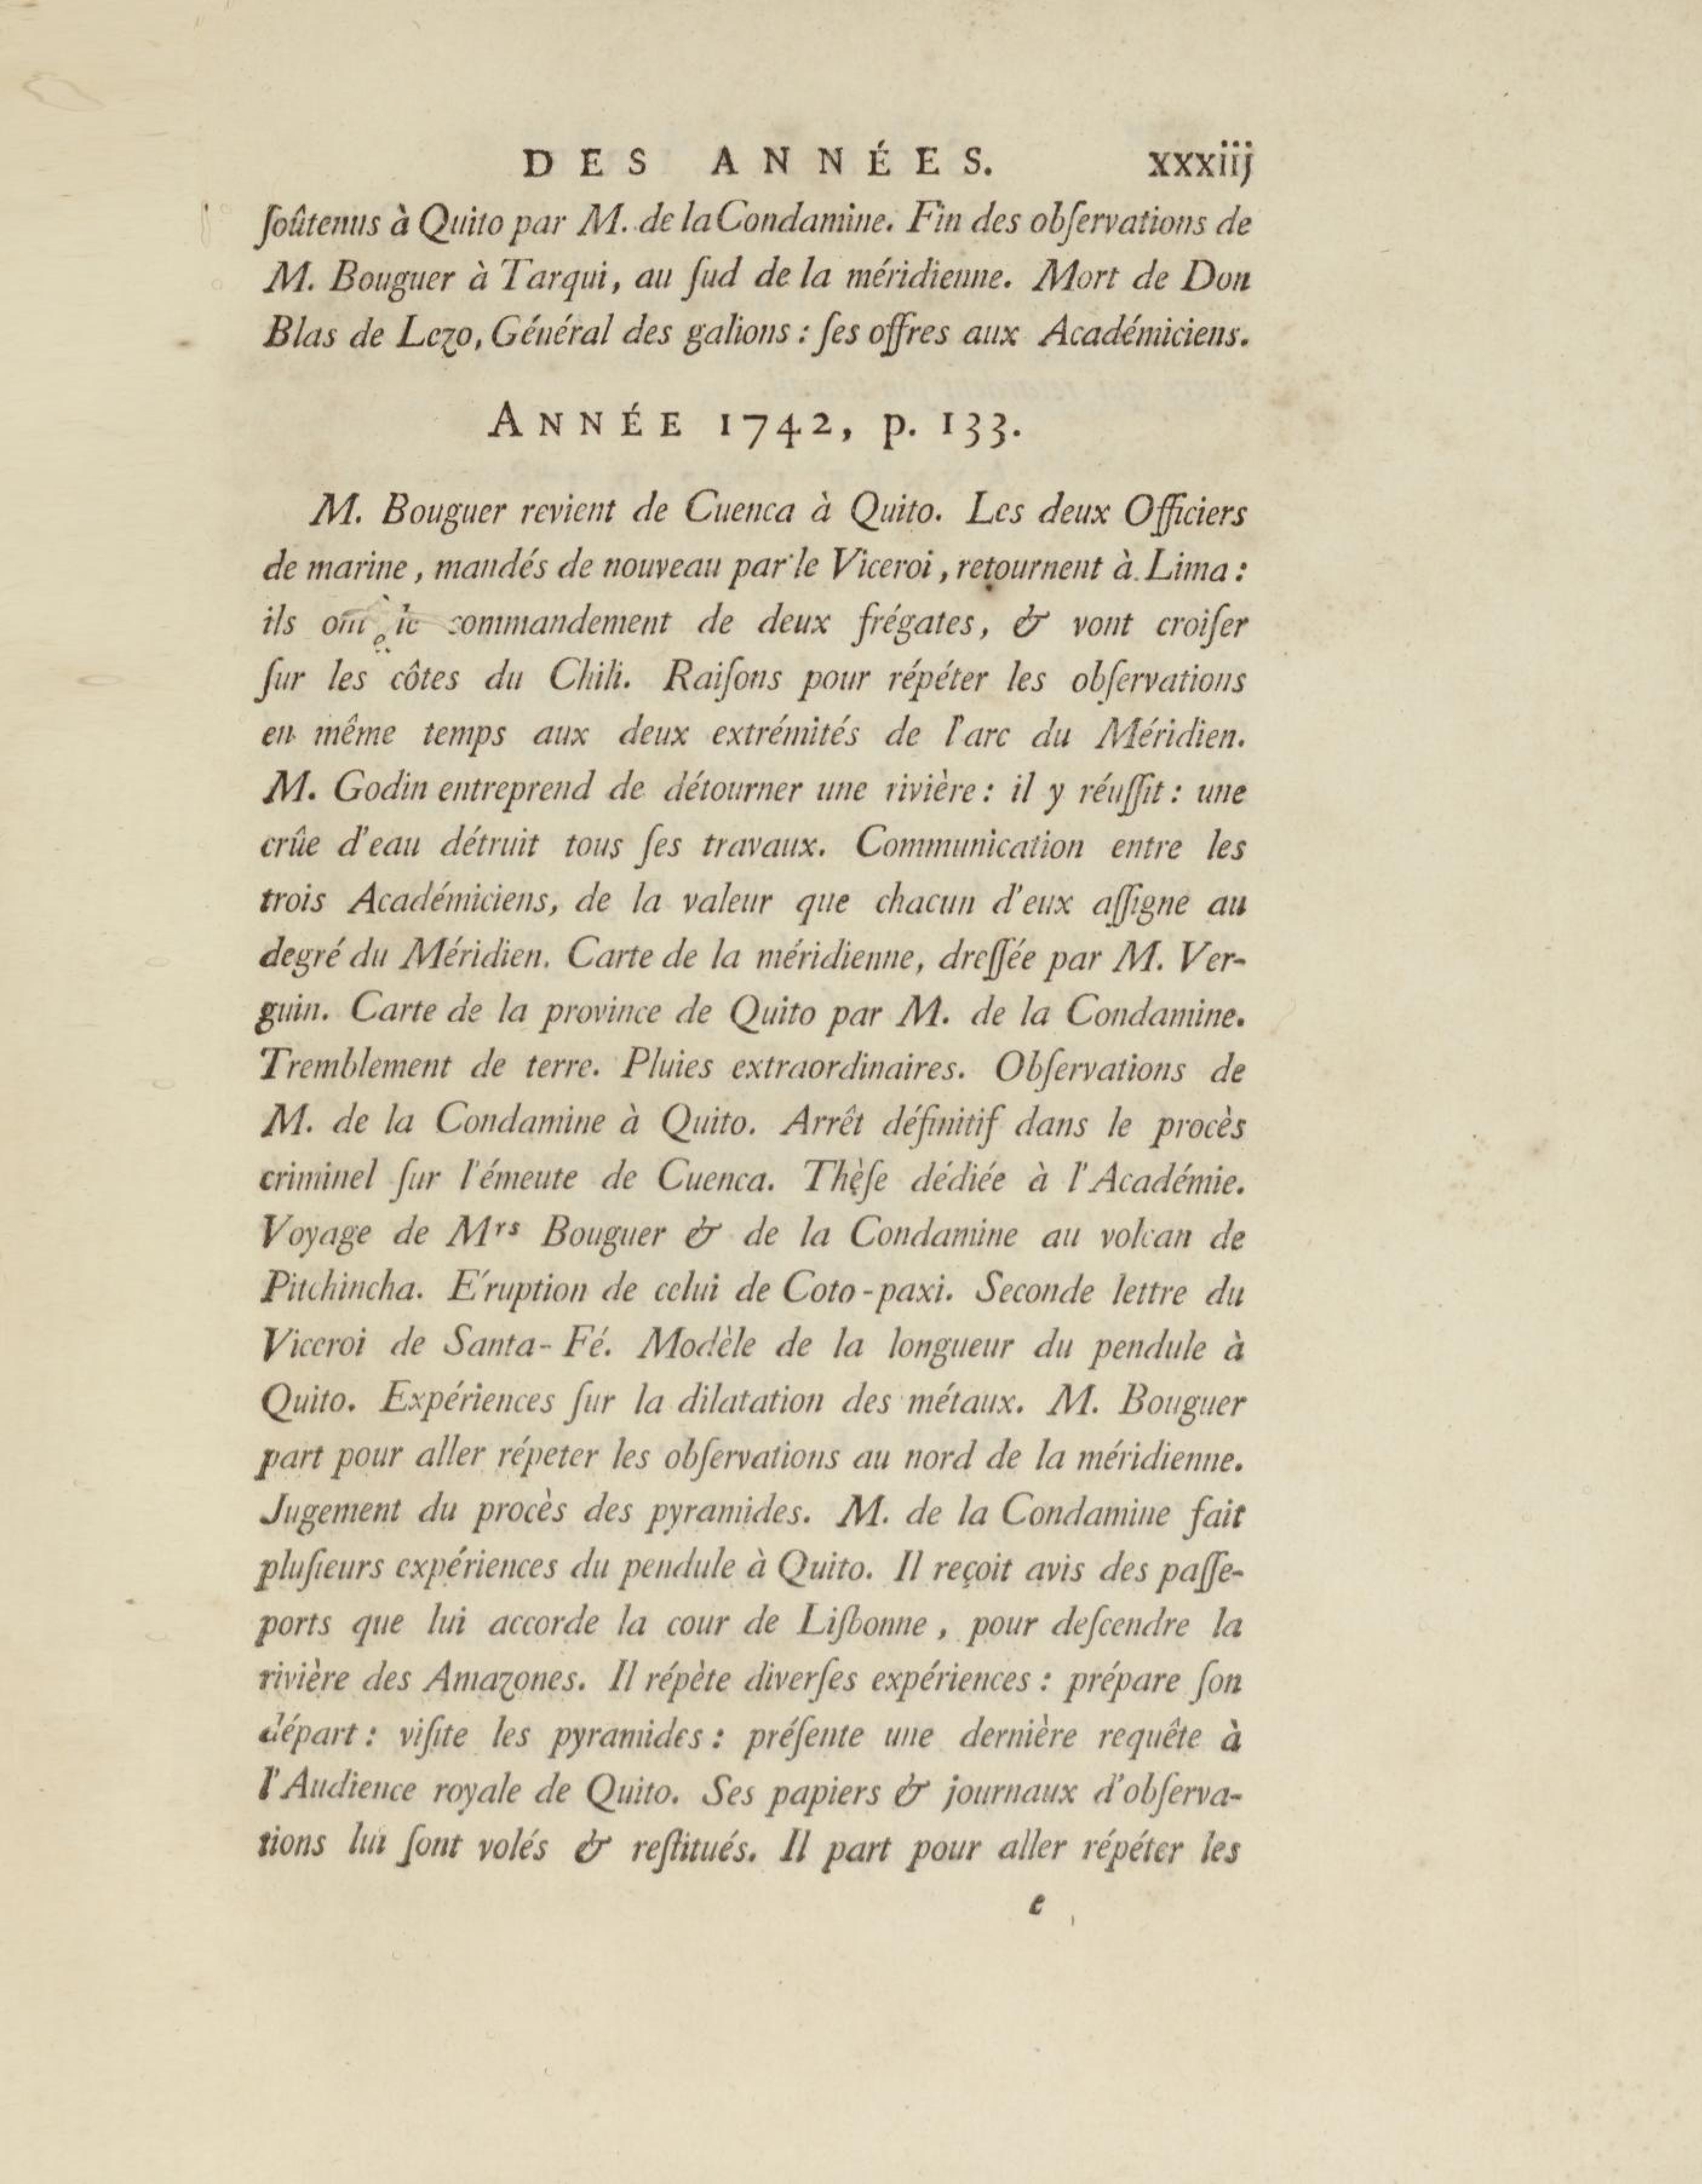 DES ANNÉES. xxxiij
ſoûtenus à Quito par M. de la Condamine. Fin des obſervations de
M. Bouguer à Tarqui, au ſud de la méridienne. Mort de Don
Blas de Lezo, Général des galions : ſes offres aux Académiciens.
ANNÉE 1742, p. 133.
M. Bouguer revient de Cuenca à Quito. Les deux Officiers
de marine, mandés de nouveau par le Viceroi, retournent à Lima :
ils ont le commandement de deux frégates, & vont croiſer
ſur les côtes du Chili. Raiſons pour répéter les obſervations
en même temps aux deux extrémités de l'arc du Méridien.
M. Godin entreprend de détourner une rivière : il y réuſſit : une
crûe d'eau détruit tous ſes travaux. Communication entre les
trois Académiciens, de la valeur que chacun d'eux aſſigne au
degré du Méridien. Carte de la méridienne, dreſſée par M. Ver-
guin. Carte de la province de Quito par M. de la Condamine.
Tremblement de terre. Pluies extraordinaires. Obſervations de
M. de la Condamine à Quito. Arrêt définitif dans le procès
criminel ſur l'émeute de Cuenca. Thèſe dédiée à l'Académie.
Voyage de Mrs Bouguer & de la Condamine au volcan de
Pitchincha. E'ruption de celui de Coto-paxi. Seconde lettre du
Viceroi de Santa-Fé. Modèle de la longueur du pendule à
Quito. Expériences ſur la dilatation des métaux. M. Bouguer
part pour aller répeter les obſervations au nord de la méridienne.
Jugement du procès des pyramides. M. de la Condamine fait
pluſieurs expériences du pendule à Quito. Il reçoit avis des paſſe-
ports que lui accorde la cour de Liſbonne, pour deſcendre la
rivière des Amazones. Il répète diverſes expériences : prépare ſon
départ : viſite les pyramides : préſente une dernière requête à
l'Audience royale de Quito. Ses papiers & journaux d'obſerva-
tions lui ſont volés & reſtitués. Il part pour aller répéter les
e